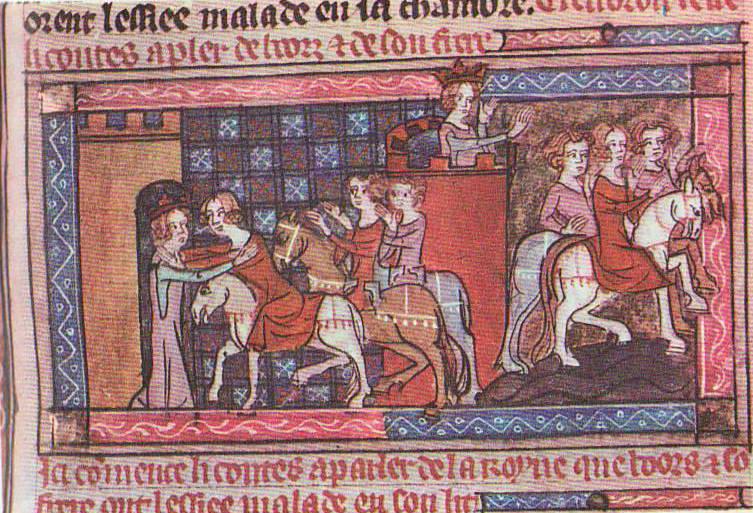 orent lessiee malade en la chambre.
li contes apler de boorz ⁊ de son frere
comence li contes aparler de la Royne que boors ⁊ so
frere ont lessiee malade en son lit